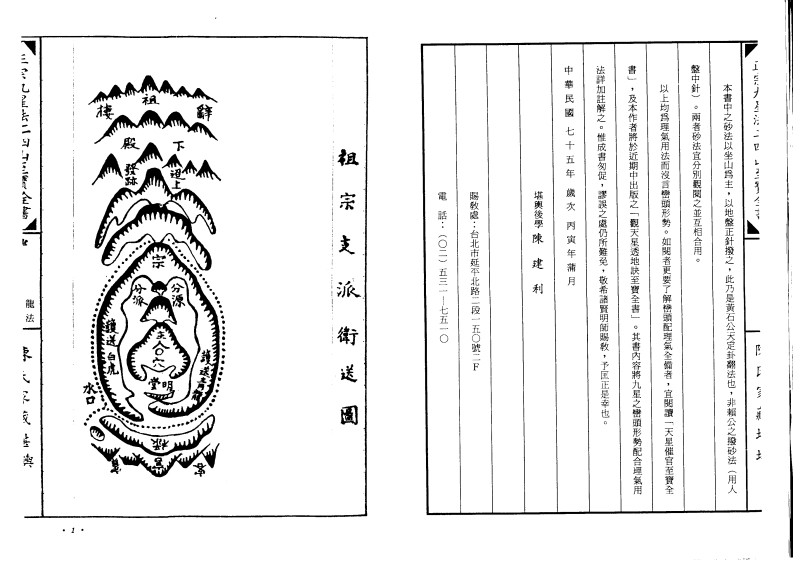 本書中之砂法以坐山爲主，以地盤正針撥之，此乃是黃石公天定卦翻法也，非賴公之撥砂法（用人
盤中針）。兩者砂法宜分別觀閱之並互相合用。
以上均爲理氣用法而沒言巒頭形勢。如閱者更要了解巒頭配理氣全備者，宜閱讀「天星催官至寶全
書」，及本作者將於近期中出版之「觀天星透地訣至寶全書」。其書內容將九星之巒頭形勢配合理氣用
法詳加註解之。惟成書匆促，謬誤之處仍所難免，敬希諸賢明師賜教，予匡正是幸也。
中華民國七十五年歲次丙寅年蒲月
堪輿後學陳建利
賜敎處：台北市延平北路二段一五〇號二F
電話：（〇二）五三一—七五一〇
祖宗支派衛送圖
祖
辭
樓
下
殿
發跡
宗
分源
分派
主
穴
明堂
護送白虎
水口
案
龍法
• 1 •